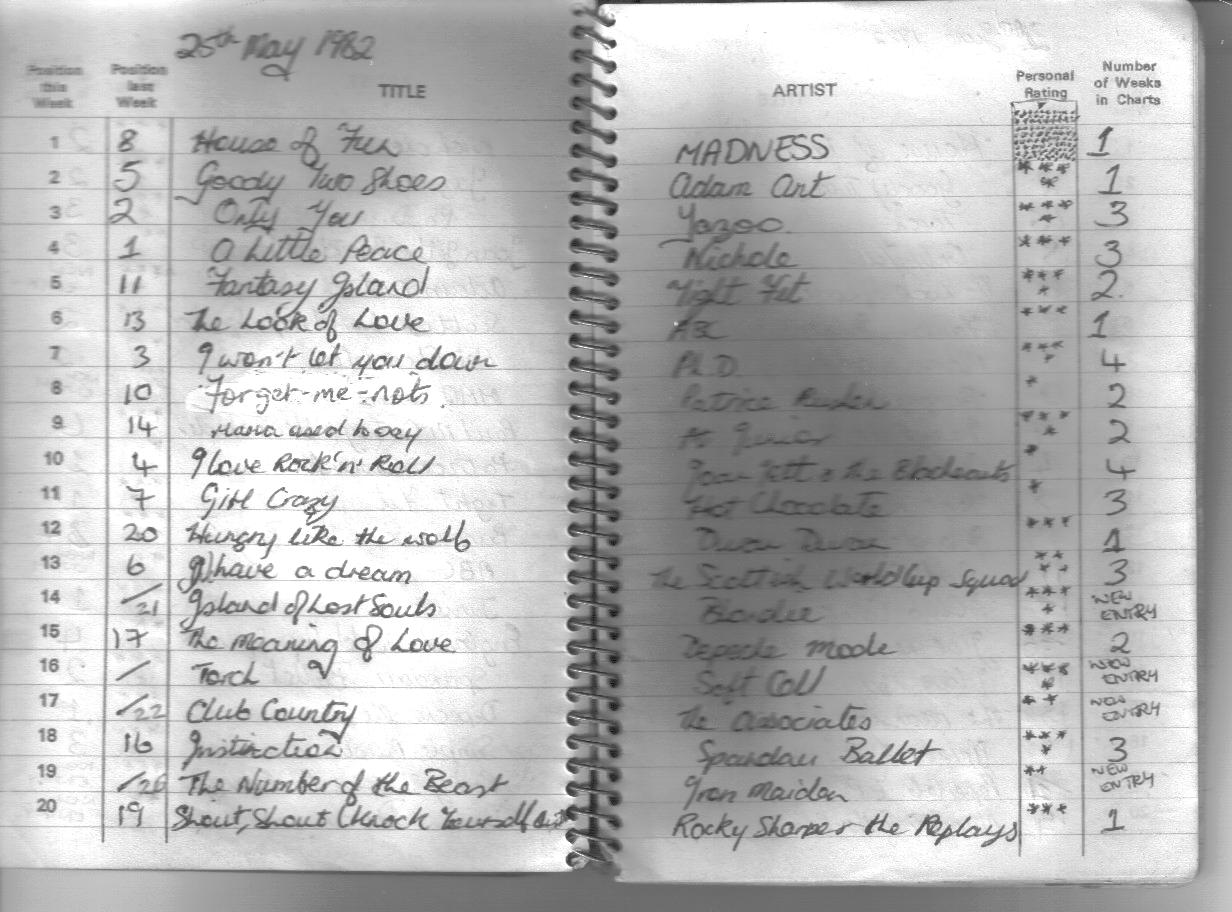 25th May 1982
Position this Week Position last Week TITLE ARTIST Personal Rating Number of Weeks in Charts
1 8 House of Fun MADNESS 1
2 5 Goody Two Shoes Adam Ant **** 1
3 2 Only You Yazoo. **** 3
4 1 A Little Peace Nichole *** 3
5 11 Fantasy Island Tight Fit **** 2
6 13 The Look of Love ABC *** 1
7 3 I won't let you down Ph.D **** 4
8 10 Forget-me-nots. Patrice Rushen * 2
9 14 Mama used to say Junior **** 2
10 4 I Love Rock'n'Roll Joan Jett & the Blackearts * 4
11 7 Girl Crazy Hot Chocolate * 3
12 20 Hungry like the wolf Duran Duran *** 1
13 6 I have a dream The Scottish World Cup Squad **** 3
14 /21 Island of Lost Souls Blondie **** NEW ENTRY
15 17 The meaning of Love Depeche mode *** 2
16 / Torch Soft Cell **** NEW ENTRY
17 /22 Club Country The Associates ** NEW ENTRY
18 16 Instinction Spandau Ballet **** 3
19 /26 The Number of the Beast Iron Maiden ** NEW ENTRY
20 19 Shout, Shout (Knock Yourself out) Rocky Sharpe & the Replays *** 1